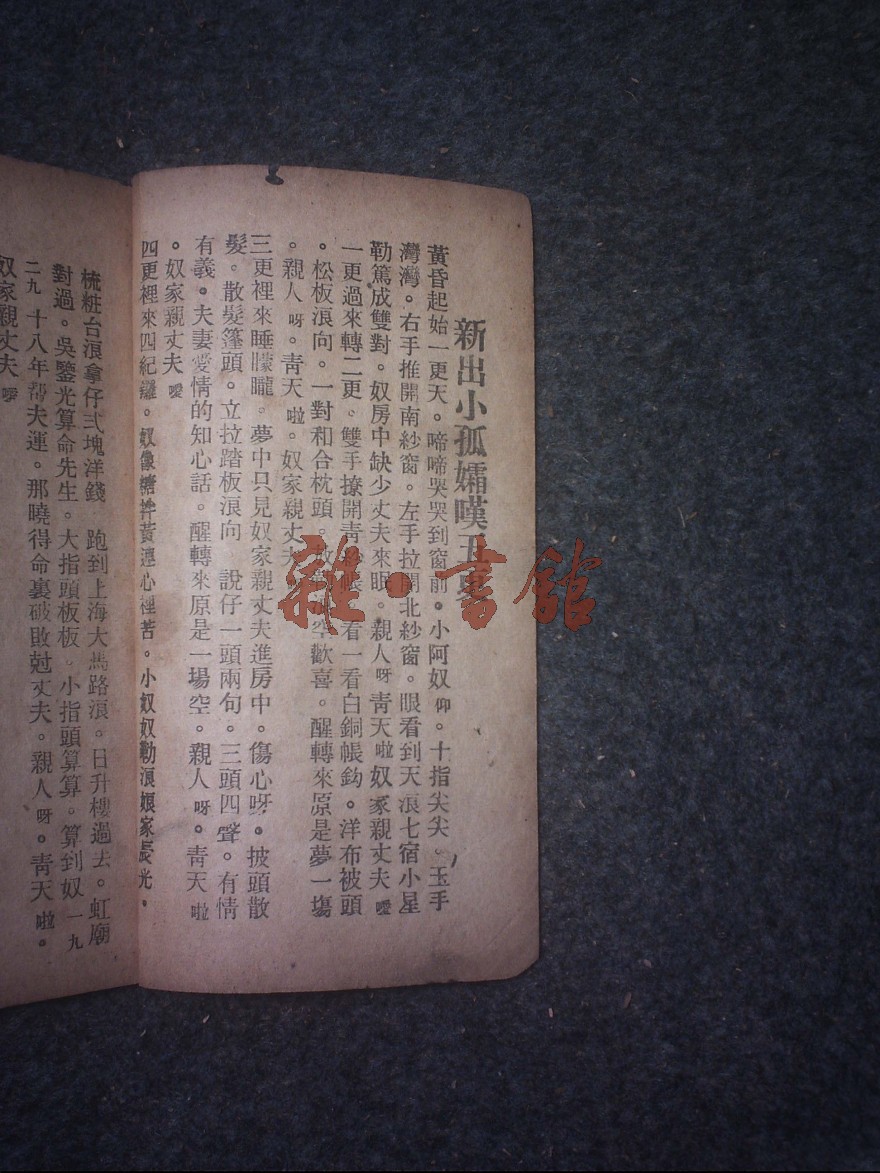 新出小孤孀嘆五更
黃昏起始一更天。啼啼哭哭到窗前。小阿奴仰。十指尖尖。玉手
灣灣。右手推開南紗窗。左手拉開北紗窗。眼看到天浪七宿小星
勒篤成雙對。奴房中缺少丈夫來眠。親人呀靑天啦奴家親丈夫噯
一更過來轉二更。雙手撩開靑 帳 看一看白銅帳鈎。洋布被頭
。松板浪向。一對和合枕頭。 空歡喜。醒轉來原是夢一塲
。親人呀。靑天啦。奴家親丈夫
三更裡來睡矇矓。夢中只見奴家親丈夫進房中。傷心呀。披頭散
髮。散髮篷頭。立拉踏板浪向 說仔一頭兩句。三頭四聲。有情
有義。夫妻愛情的知心話。醒轉來原是一塲空。親人呀。靑天啦
。奴家親丈夫噯
四更裡來四紀 。奴像 拌黃連心裡苦。小奴奴勒浪娘家長光。
梳粧台浪拿仔弍塊洋錢 跑到上海大馬路浪。日升樓過去。虹廟
對過。吳鑒光算命先生。大指頭板板。小指頭算算。算到奴一九
二九 十八年帮夫運。那曉得命裏破敗尅丈夫。親人呀。靑天啦。
奴家親丈夫噯
雜·書館